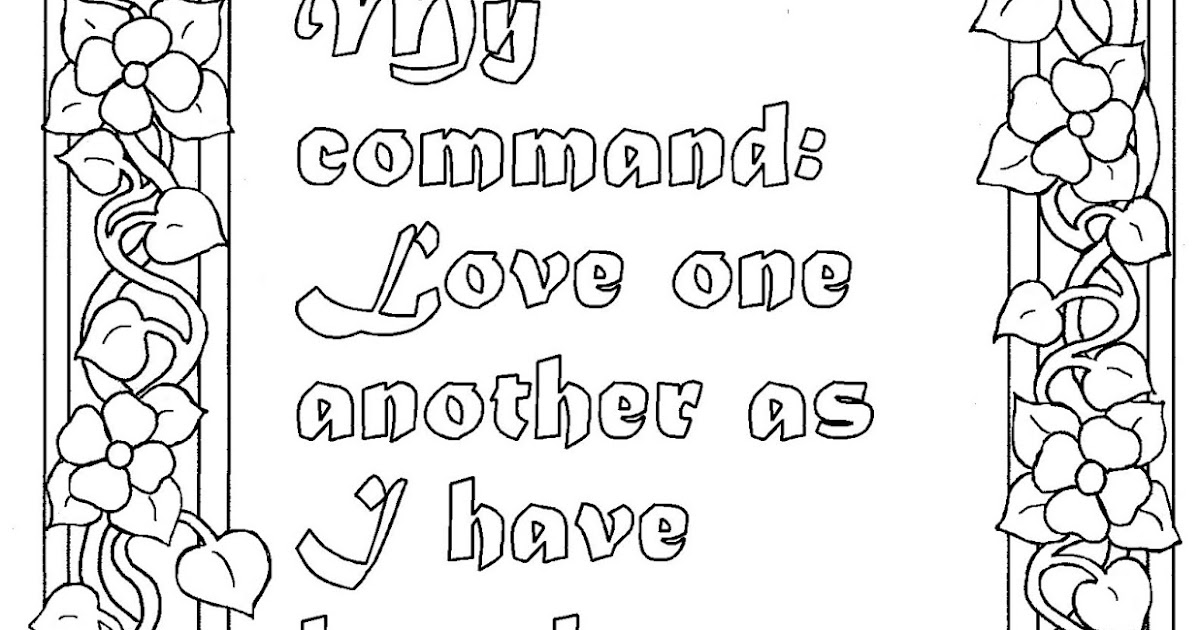 My
command:
Love one
another as
I have